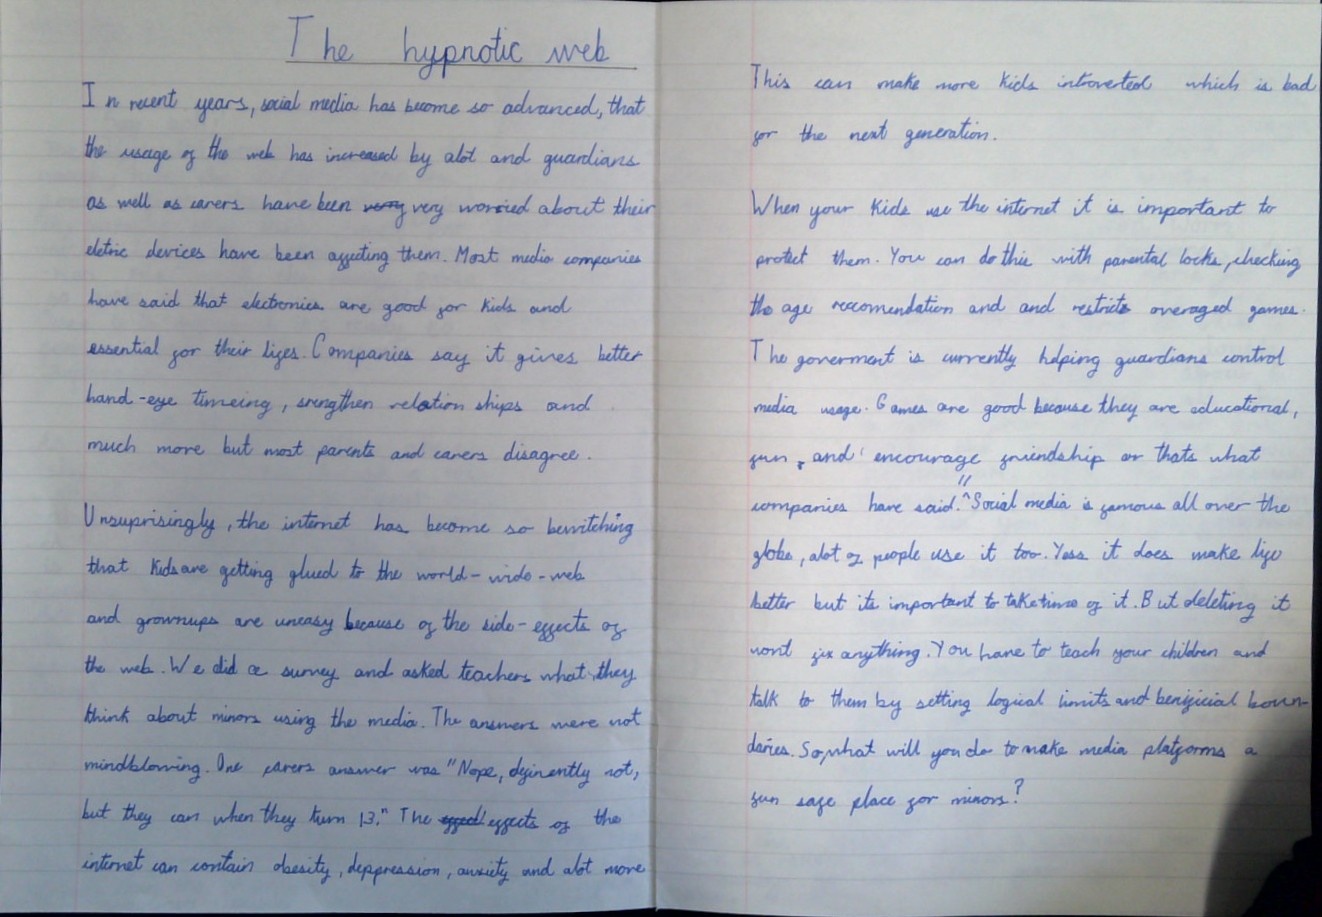 The hypnotic web
In recent years, social media has become so advanced, that
the usage of the web has increased by alot and guardians
as well as carers have been very very worried about their
eletric devices have been affecting them. Most media companies
have said that electronics are good for kids and
essential for their lifes. Companies say it gives better
hand-eye timeing, srengthen relation ships and
much more but most parents and carers disagree.
Unsuprisingly, the internet has become so bewitching
that kids are getting glued to the world-wide-web
and grownups are uneasy because of the side-effects of
the web. We did a survey and asked teachers what they
think about minors using the media. The answers were not
mindblowing. One carers answer was "Nope, dyinently not,
but they can when they turn 13." The effect effects of the
internet can contain obesity, deppression, anxiety and alot more
This can make more kids introverted which is bad
for the next generation.
When your kids use the internet it is important to
protect them. You can do this with parental locks, checking
the age reccomendation and and restricts overaged games.
The goverment is currently helping guardians control
media usage. Games are good because they are educational,
fun, and encourage friendship or thats what
companies have said." Social media is famous all over the
globe, alot of people use it too. Yess it does make life
better but its important to take time of it. But deleting it
wont fix anything. You have to teach your children and
talk to them by setting logical limits and benificial boun-
daries. So, what will you do to make media platforms a
fun safe place for minors?